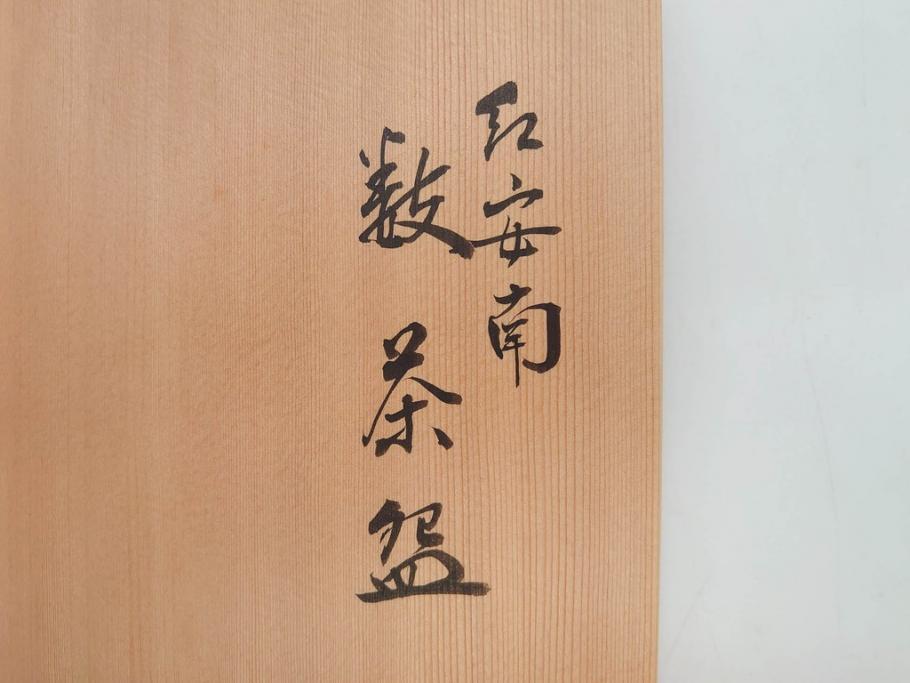 紅安南
数茶盌